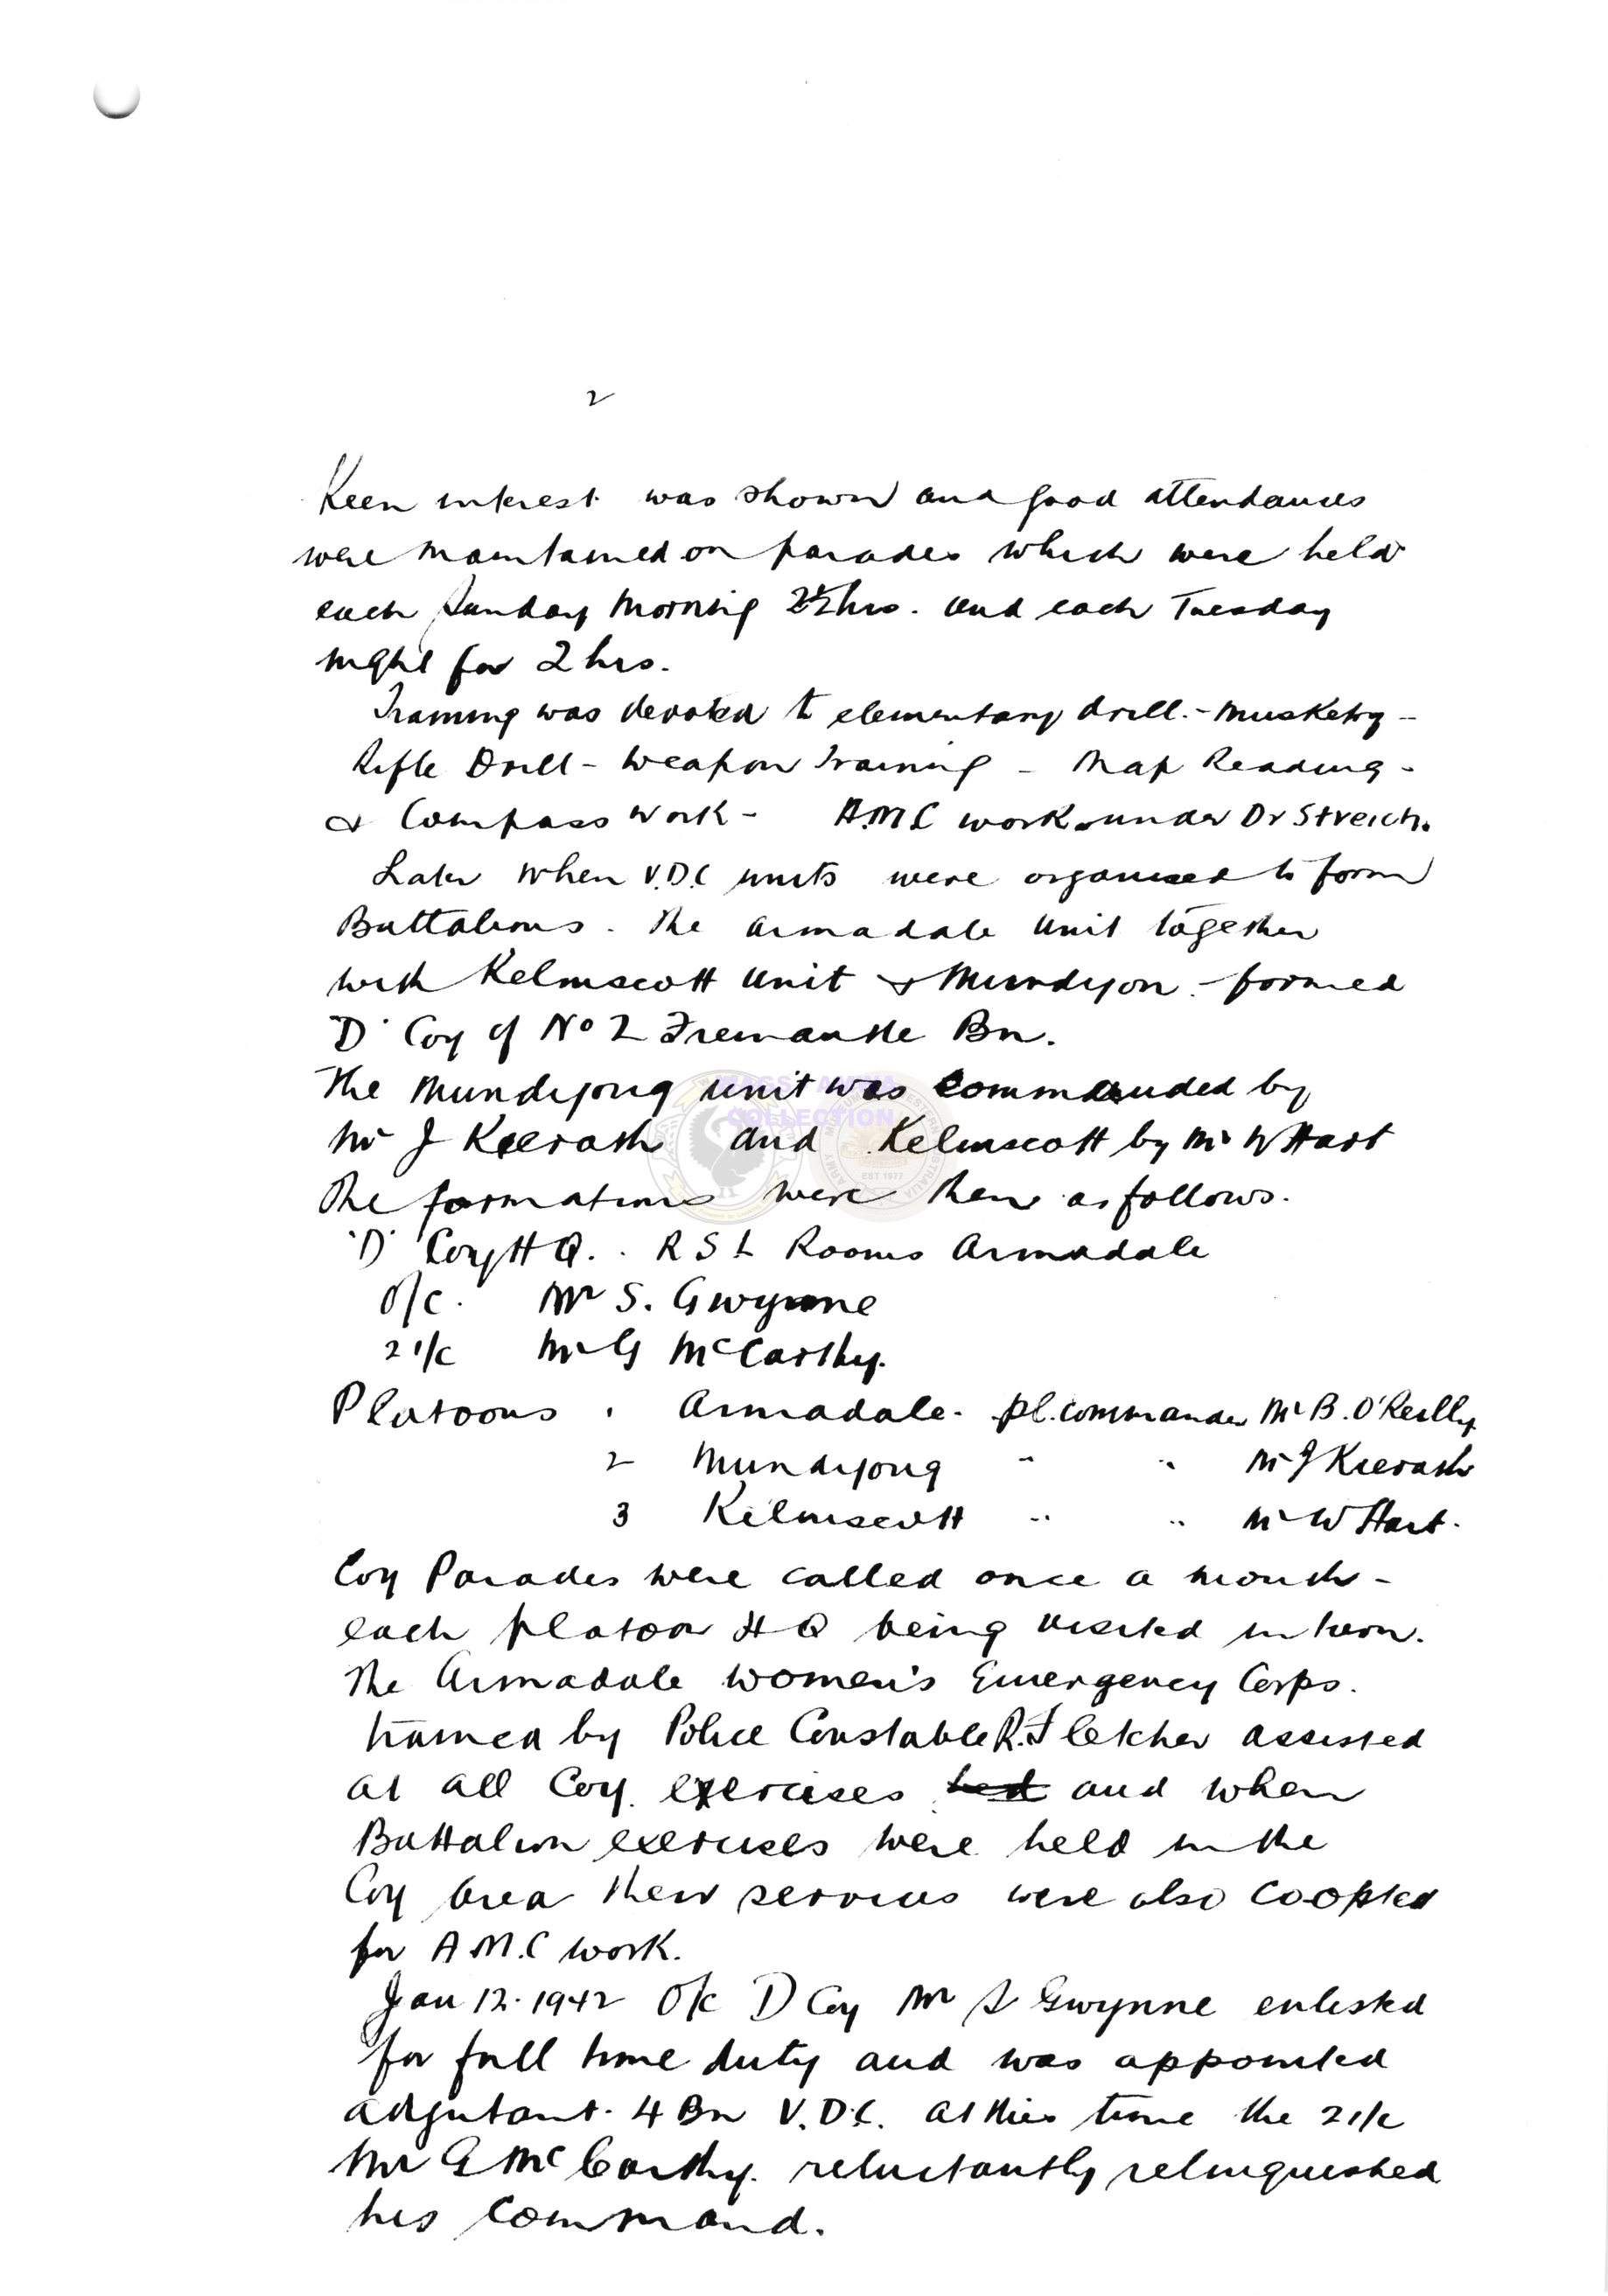 2
Keen interest was shown and good attendances
were maintained on parades which were held
each Sunday Morning 2½hrs. and each Tuesday
night for 2 hrs.
Training was devoted to elementary drill. - Musketry -
Rifle Drill - Weapon Training - Map Reading -
& Compass Work - A.M.C work under Dr Streich.
Later when V.D.C units were organised to form
Battalions. The Armadale Unit together
with Kelmscott Unit & Mundijon. - formed
'D' Coy of No 2 Fremantle Bn.
The Mundijong unit was commanded by
Mr J Kierath and Kelmscott by Mr W Hart
The formations were then as follows.
'D' Coy H Q. . R S L Rooms Armadale
O/C. Mr S. Gwynne
2 I/C Mr G McCarthy.
Platoons 1 Armadale - pl. commander Mr B. O'Reilly
2 Mundijong " " Mr J Kierath
3 Kelmscott " " Mr W Hart.
Coy Parades were called once a month -
each platoon H Q being visited in turn.
The Armadale Women's Emergency Corps.
trained by Police Constable R. Fletcher assisted
at all Coy. exercises and when
Battalion exercises were held in the
Coy area their services were also coopted
for A.M.C work.
Jan 12. 1942 O/c D Coy Mr S Gwynne enlisted
for full time duty and was appointed
adjutant. 4 Bn V.D.C. At this time the 2 I/c
Mr G McCarthy. reluctantly relinquished
his command.
COLLECTION
EST 1977